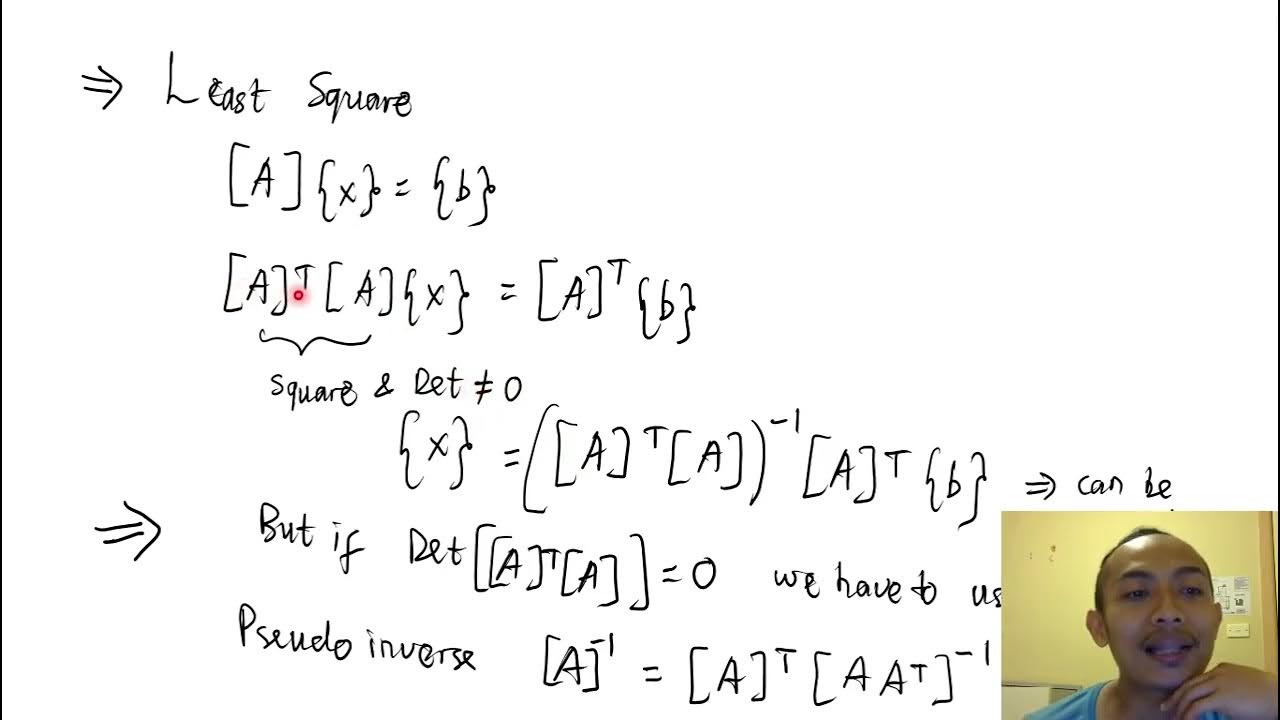 ⇒ Least Square
[A]{x} = {b}
[A]ᵀ[A]{x} = [A]ᵀ{b}
square & Det ≠ 0
{x} = ([A]ᵀ[A])⁻¹[A]ᵀ{b} ⇒ can be
⇒ But if Det[[A]ᵀ[A]] = 0 we have to us
Pseudo inverse [A]⁻¹ = [A]ᵀ[AAᵀ]⁻¹